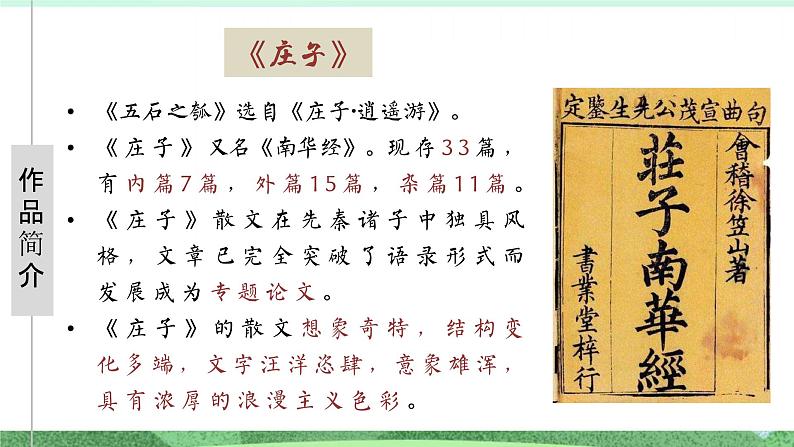 《庄子》
作品简介
• 《五石之瓠》选自《庄子·逍遥游》。
• 《庄子》又名《南华经》。现存33篇，
有内篇7篇，外篇15篇，杂篇11篇。
• 《庄子》散文在先秦诸子中独具风
格，文章已完全突破了语录形式而
发展成为专题论文。
• 《庄子》的散文想象奇特，结构变
化多端，文字汪洋恣肆，意象雄浑，
具有浓厚的浪漫主义色彩。
句曲宣茂公先生鑒定
會稽徐笠山著
莊子南華經
書業堂梓行